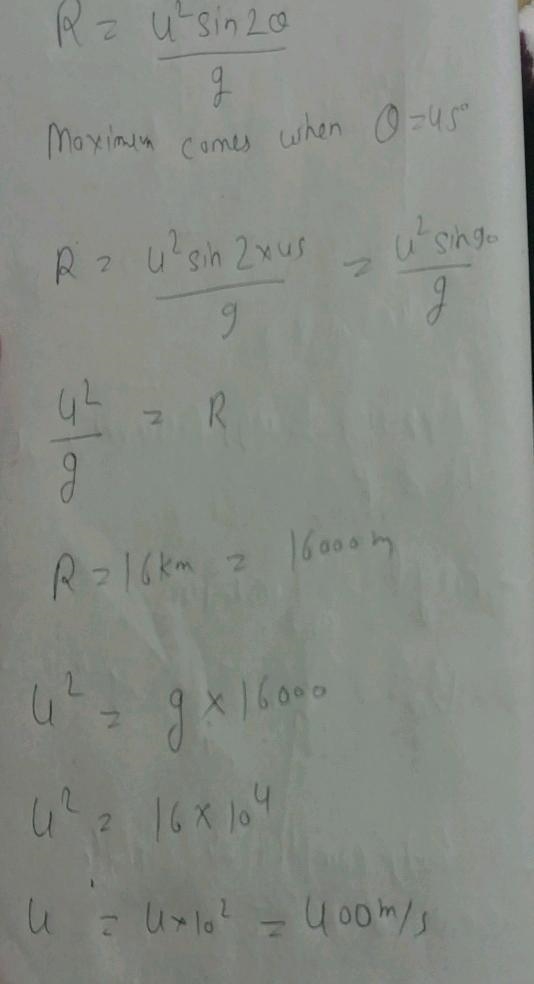 R = u² sin 2θ / g
Maximum comes when θ = 45°
R = u² sin 2×45 / g = u² sin 90 / g
u² / g = R
R = 16 km = 16000 m
u² = g × 16000
u² = 16 × 10⁴
u = 4×10² = 400 m/s